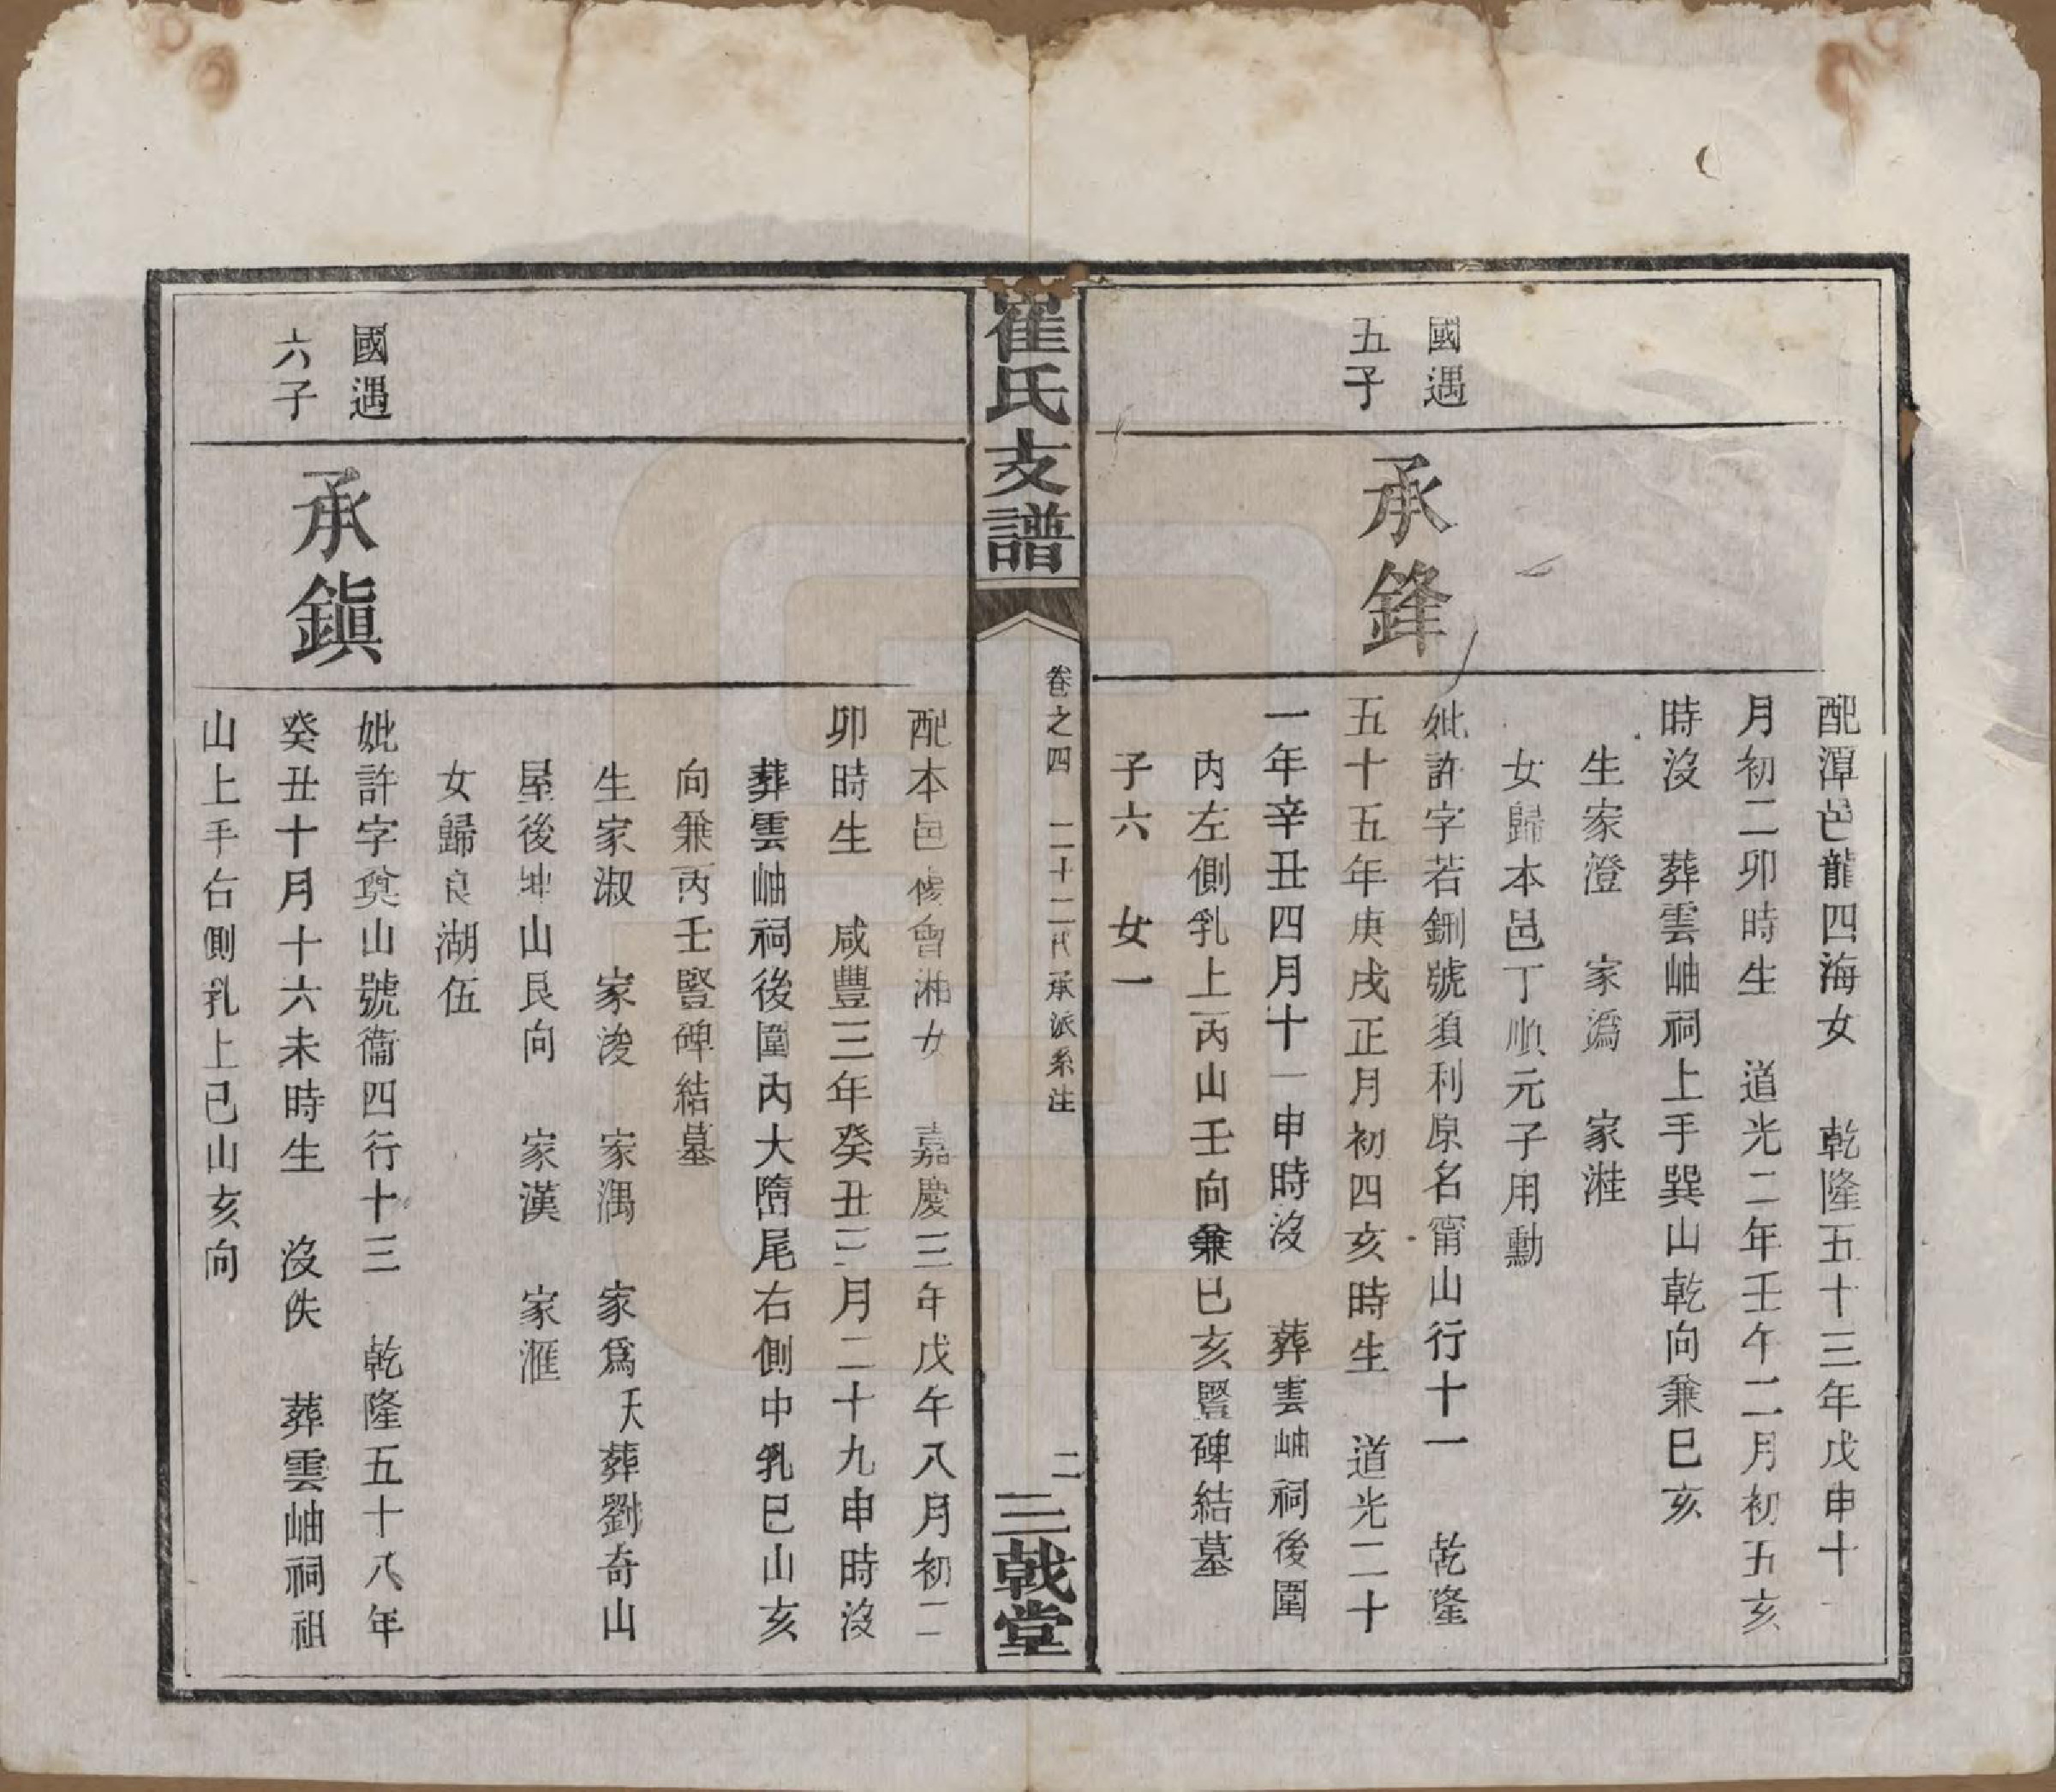 配潭邑龍四海女　乾隆五十三年戊申十
月初二卯時生　道光二年壬午二月初五亥
時沒　葬雲岫祠上手巽山乾向兼巳亥
生家澄　家溈　家溎
女歸本邑丁順元子用勳
國遇
五子
承鋒
妣許字若鉶號須利原名甯山行十一　乾隆
五十五年庚戌正月初四亥時生　道光二十
一年辛丑四月十一申時沒　葬雲岫祠後圍
内左側乳上丙山壬向兼巳亥豎碑結墓
子六　女一
崔氏支譜
卷之四　二十二代承派系注
二
三戟堂
配本邑　會湘女　嘉慶三年戊午八月初二
卯時生　咸豐三年癸丑三月二十九申時沒
葬雲岫祠後圍内大隋尾右側中乳巳山亥
向兼丙壬豎碑結墓
生家淑　家浚　家湡　家爲夭葬劉奇山
屋後坤山艮向　家漢　家滙
女歸良湖伍
國遇
六子
承鎮
妣許字奠山號衞四行十三　乾隆五十八年
癸丑十月十六未時生　沒佚　葬雲岫祠祖
山上手右側乳上巳山亥向